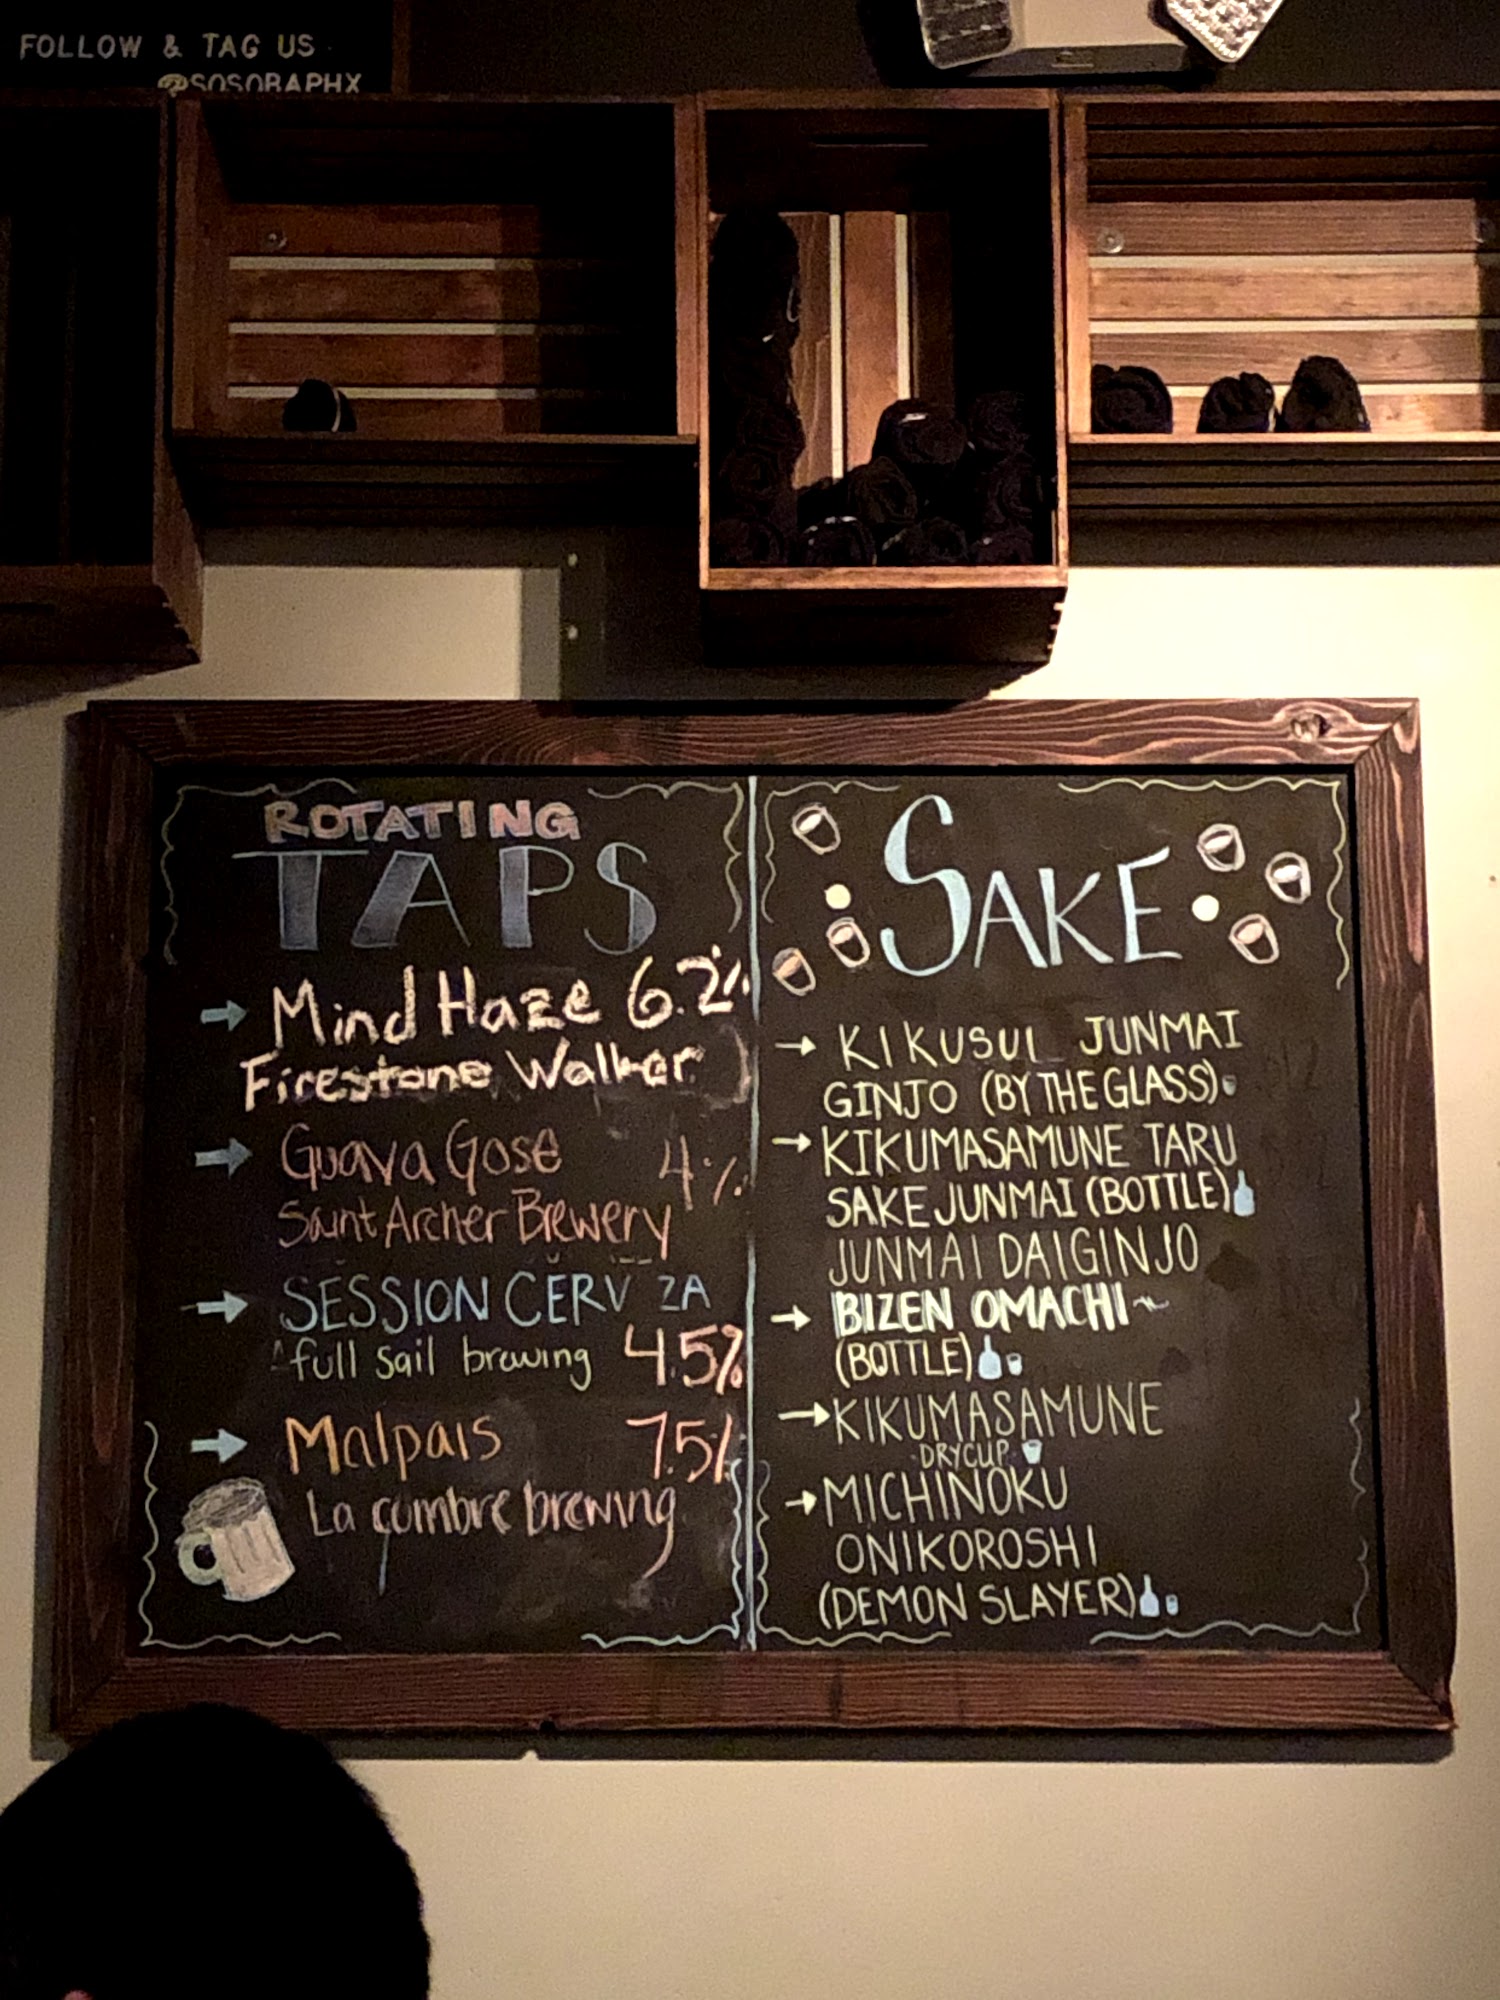 FOLLOW & TAG US
@SOSOBAPHX
ROTATING
TAPS
Mind Haze 6.2%
Firestone Walker
Guava Gose 4%
Saint Archer Brewery
SESSION CERV ZA
full sail brewing 4.5%
Malpais 7.5%
La cumbre brewing
SAKE
KIKUSUI JUNMAI
GINJO (BY THE GLASS)
KIKUMASAMUNE TARU
SAKE JUNMAI (BOTTLE)
JUNMAI DAIGINJO
BIZEN OMACHI
(BOTTLE)
KIKUMASAMUNE
DRYCUP
MICHINOKU
ONIKOROSHI
(DEMON SLAYER)